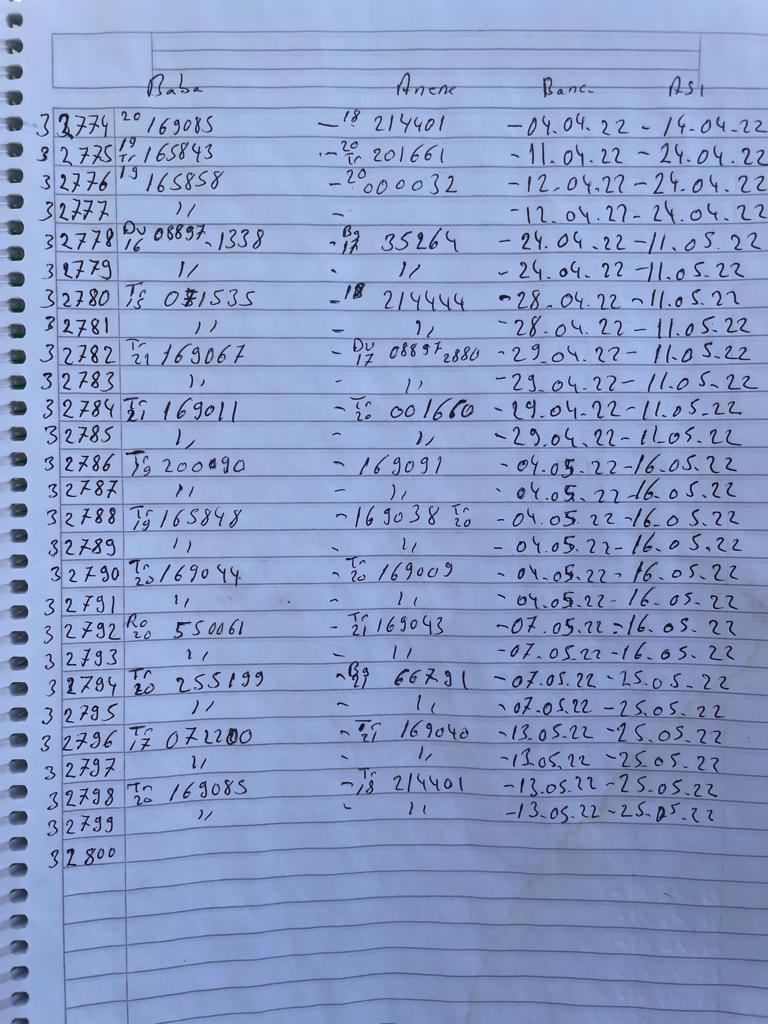 Baba Anene Banc. AS1
3 2774 20 169085 - 18 214401 - 04.04.22 - 14.04.22
3 2775 19 Tr 165843 - 20 Tr 201661 - 11.04.22 - 24.04.22
3 2776 19 165858 - 20 000032 - 12.04.22 - 24.04.22
3 2777 ,, - - 12.04.22 - 24.04.22
3 2778 Du 16 08897-1338 - Bg 17 35264 - 24.04.22 - 11.05.22
3 2779 ,, - ,, - 24.04.22 - 11.05.22
3 2780 071535 - 18 214444 - 28.04.22 - 11.05.22
3 2781 ,, - ,, - 28.04.22 - 11.05.22
3 2782 Tr 21 169067 - Du 17 08897 2880 - 29.04.22 - 11.05.22
3 2783 ,, - ,, - 29.04.22 - 11.05.22
3 2784 Tr 21 169011 - Tr 20 001660 - 29.04.22 - 11.05.22
3 2785 ,, - ,, - 29.04.22 - 11.05.22
3 2786 Tr 19 200090 - 169091 - 04.05.22 - 16.05.22
3 2787 ,, - ,, - 04.05.22 - 16.05.22
3 2788 Tr 19 165848 - 169038 Tr 20 - 04.05.22 - 16.05.22
3 2789 ,, - ,, - 04.05.22 - 16.05.22
3 2790 Tr 20 169044 - Tr 20 169009 - 04.05.22 - 16.05.22
3 2791 ,, - ,, - 04.05.22 - 16.05.22
3 2792 Ro 20 550061 - Tr 21 169043 - 07.05.22 - 16.05.22
3 2793 ,, - ,, - 07.05.22 - 16.05.22
3 2794 Tr 20 255199 - Bg 21 66791 - 07.05.22 - 25.05.22
3 2795 ,, - ,, - 07.05.22 - 25.05.22
3 2796 Tr 17 072200 - Tr 21 169040 - 13.05.22 - 25.05.22
3 2797 ,, - ,, - 13.05.22 - 25.05.22
3 2798 Tr 20 169085 - Tr 18 214401 - 13.05.22 - 25.05.22
3 2799 ,, - ,, - 13.05.22 - 25.05.22
3 2800